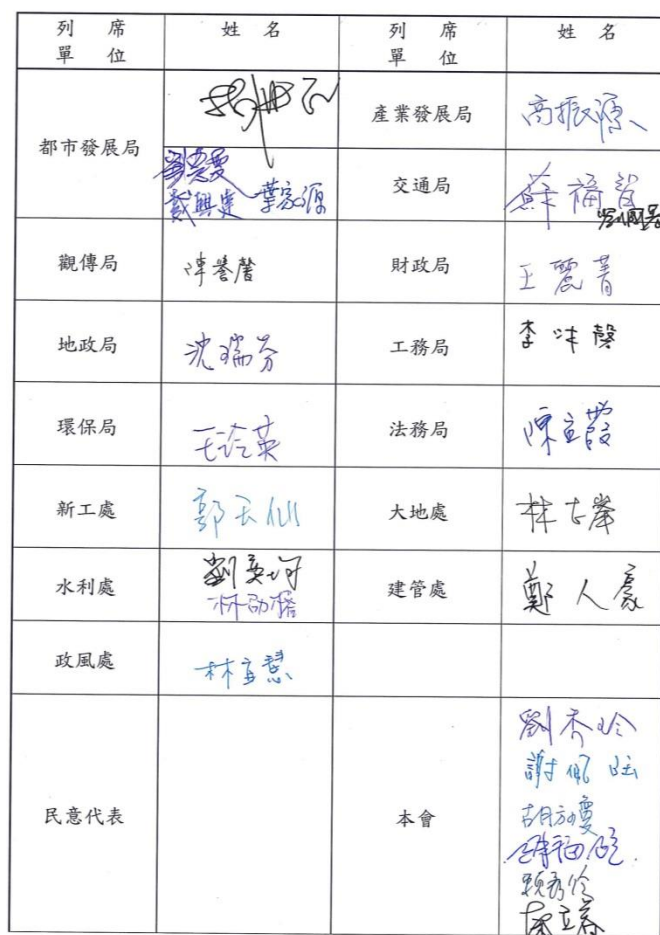 列席單位 姓名 列席單位 姓名
都市發展局 劉惠雯 戴興達 葉家源 產業發展局 高振源
交通局 蘇福智
觀傳局 陳譽馨 財政局 王麗菁
地政局 沈瑞芬 工務局 李沐馨
環保局 王玲英 法務局 陳立霞
新工處 郭天仙 大地處 林士峯
水利處 劉英珂 林劭樺 建管處 鄭人豪
政風處 林宜慧
民意代表 本會 劉秀玲
謝佩砡
胡方瓊
賴彥伶